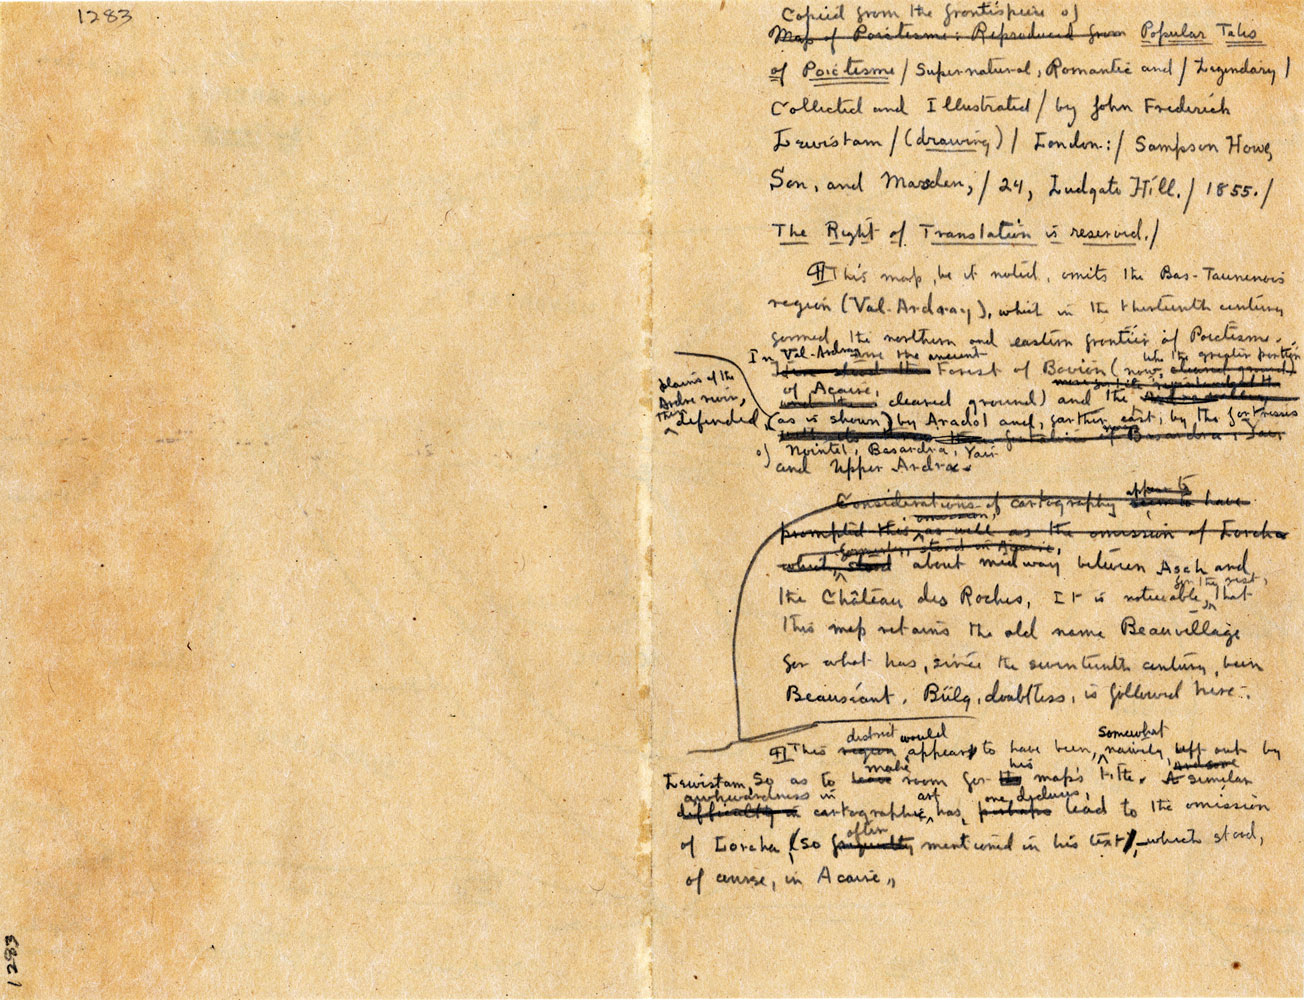 1283
Copied from the frontispiece of
Map of Poictesme: Reproduced from Popular Tales
of Poictesme / Supernatural, Romantic and / Legendary /
Collected and Illustrated / by John Frederick
Lewistam / (drawing) / London: / Sampson Howe,
Son, and Marsden, / 24, Ludgate Hill. / 1855. /
The Right of Translation is reserved. /
¶This map, be it noted, omits the Bas-Taunenois
region (Val-Ardray), which in the thirteenth century
formed the northern and eastern frontier of Poictesme.
In Val-Ardray were the ancient like the greater portion
Here stood the Forest of Bovion (now, cleared ground
of Acaire,
and the cleared ground) and the
plains of the
Ardre river,
thus defended (as is shown) by Aradol and, farther east, by the fortresses
of Nointel, Basardra, Yair
and Upper Ardra.
Considerations of cartography appear to seem to have
prompted this omission, as well as the omission of Lorcha
formerly, stood in Acaire,
which stood about midway between Asch and
the Château des Roches. It is noticeable, for the rest, that
this map retains the old name Beauvillage
for what has, since the seventeenth century, been
Beauséant. Bülg, doubtless, is followed here.
district would somewhat
¶This region appears to have been, naively, left out by
make his
Lewistam, so as to leave room for the map's title. A similar
awkwardness in art one deduces,
difficulty in cartographic has, perhaps lead to the omission
often
of Lorcha (so frequently mentioned in his text), which stood,
of course, in Acaire.
1283